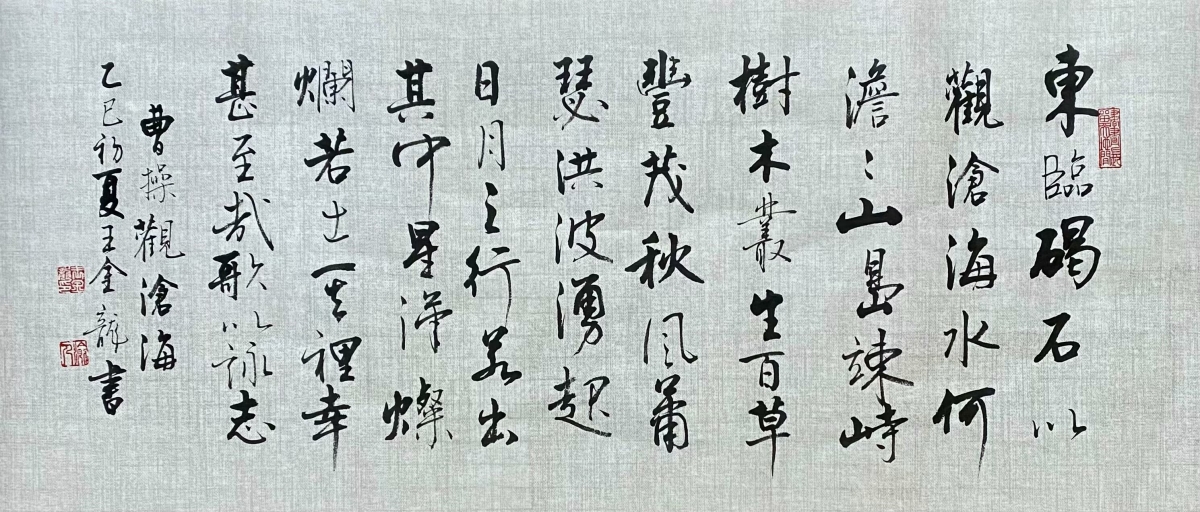 東臨碣石以
觀滄海水何
澹〻山島竦峙
樹木叢生百草
豐茂秋風蕭
瑟洪波湧起
日月之行若出
其中星漢燦
爛若出其裡幸
甚至哉歌以詠志
曹操觀滄海
乙巳初夏王金龍書